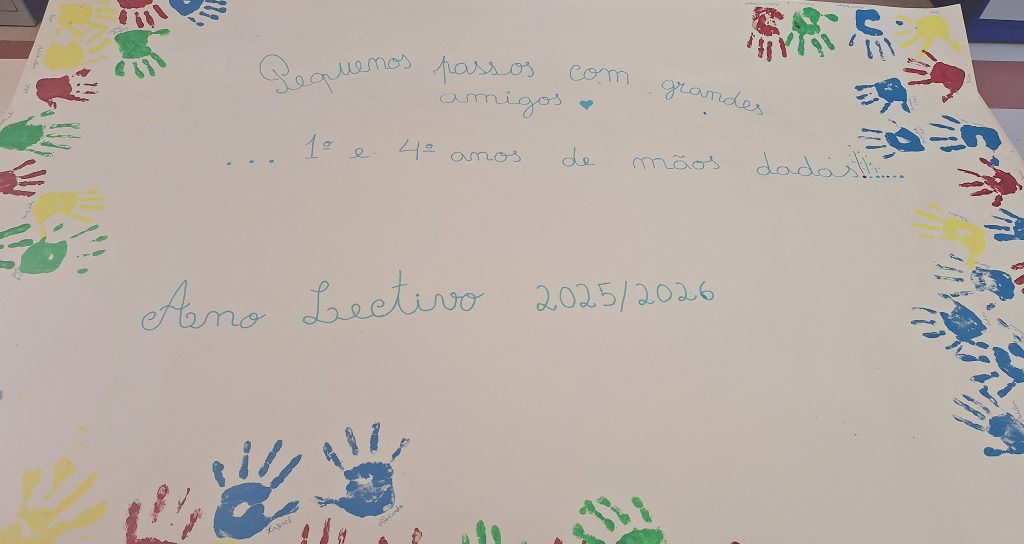 Pequenos passos com grandes
amigos
... 1º e 4º anos de mãos dadas!!!......
Ano Lectivo 2025/2026